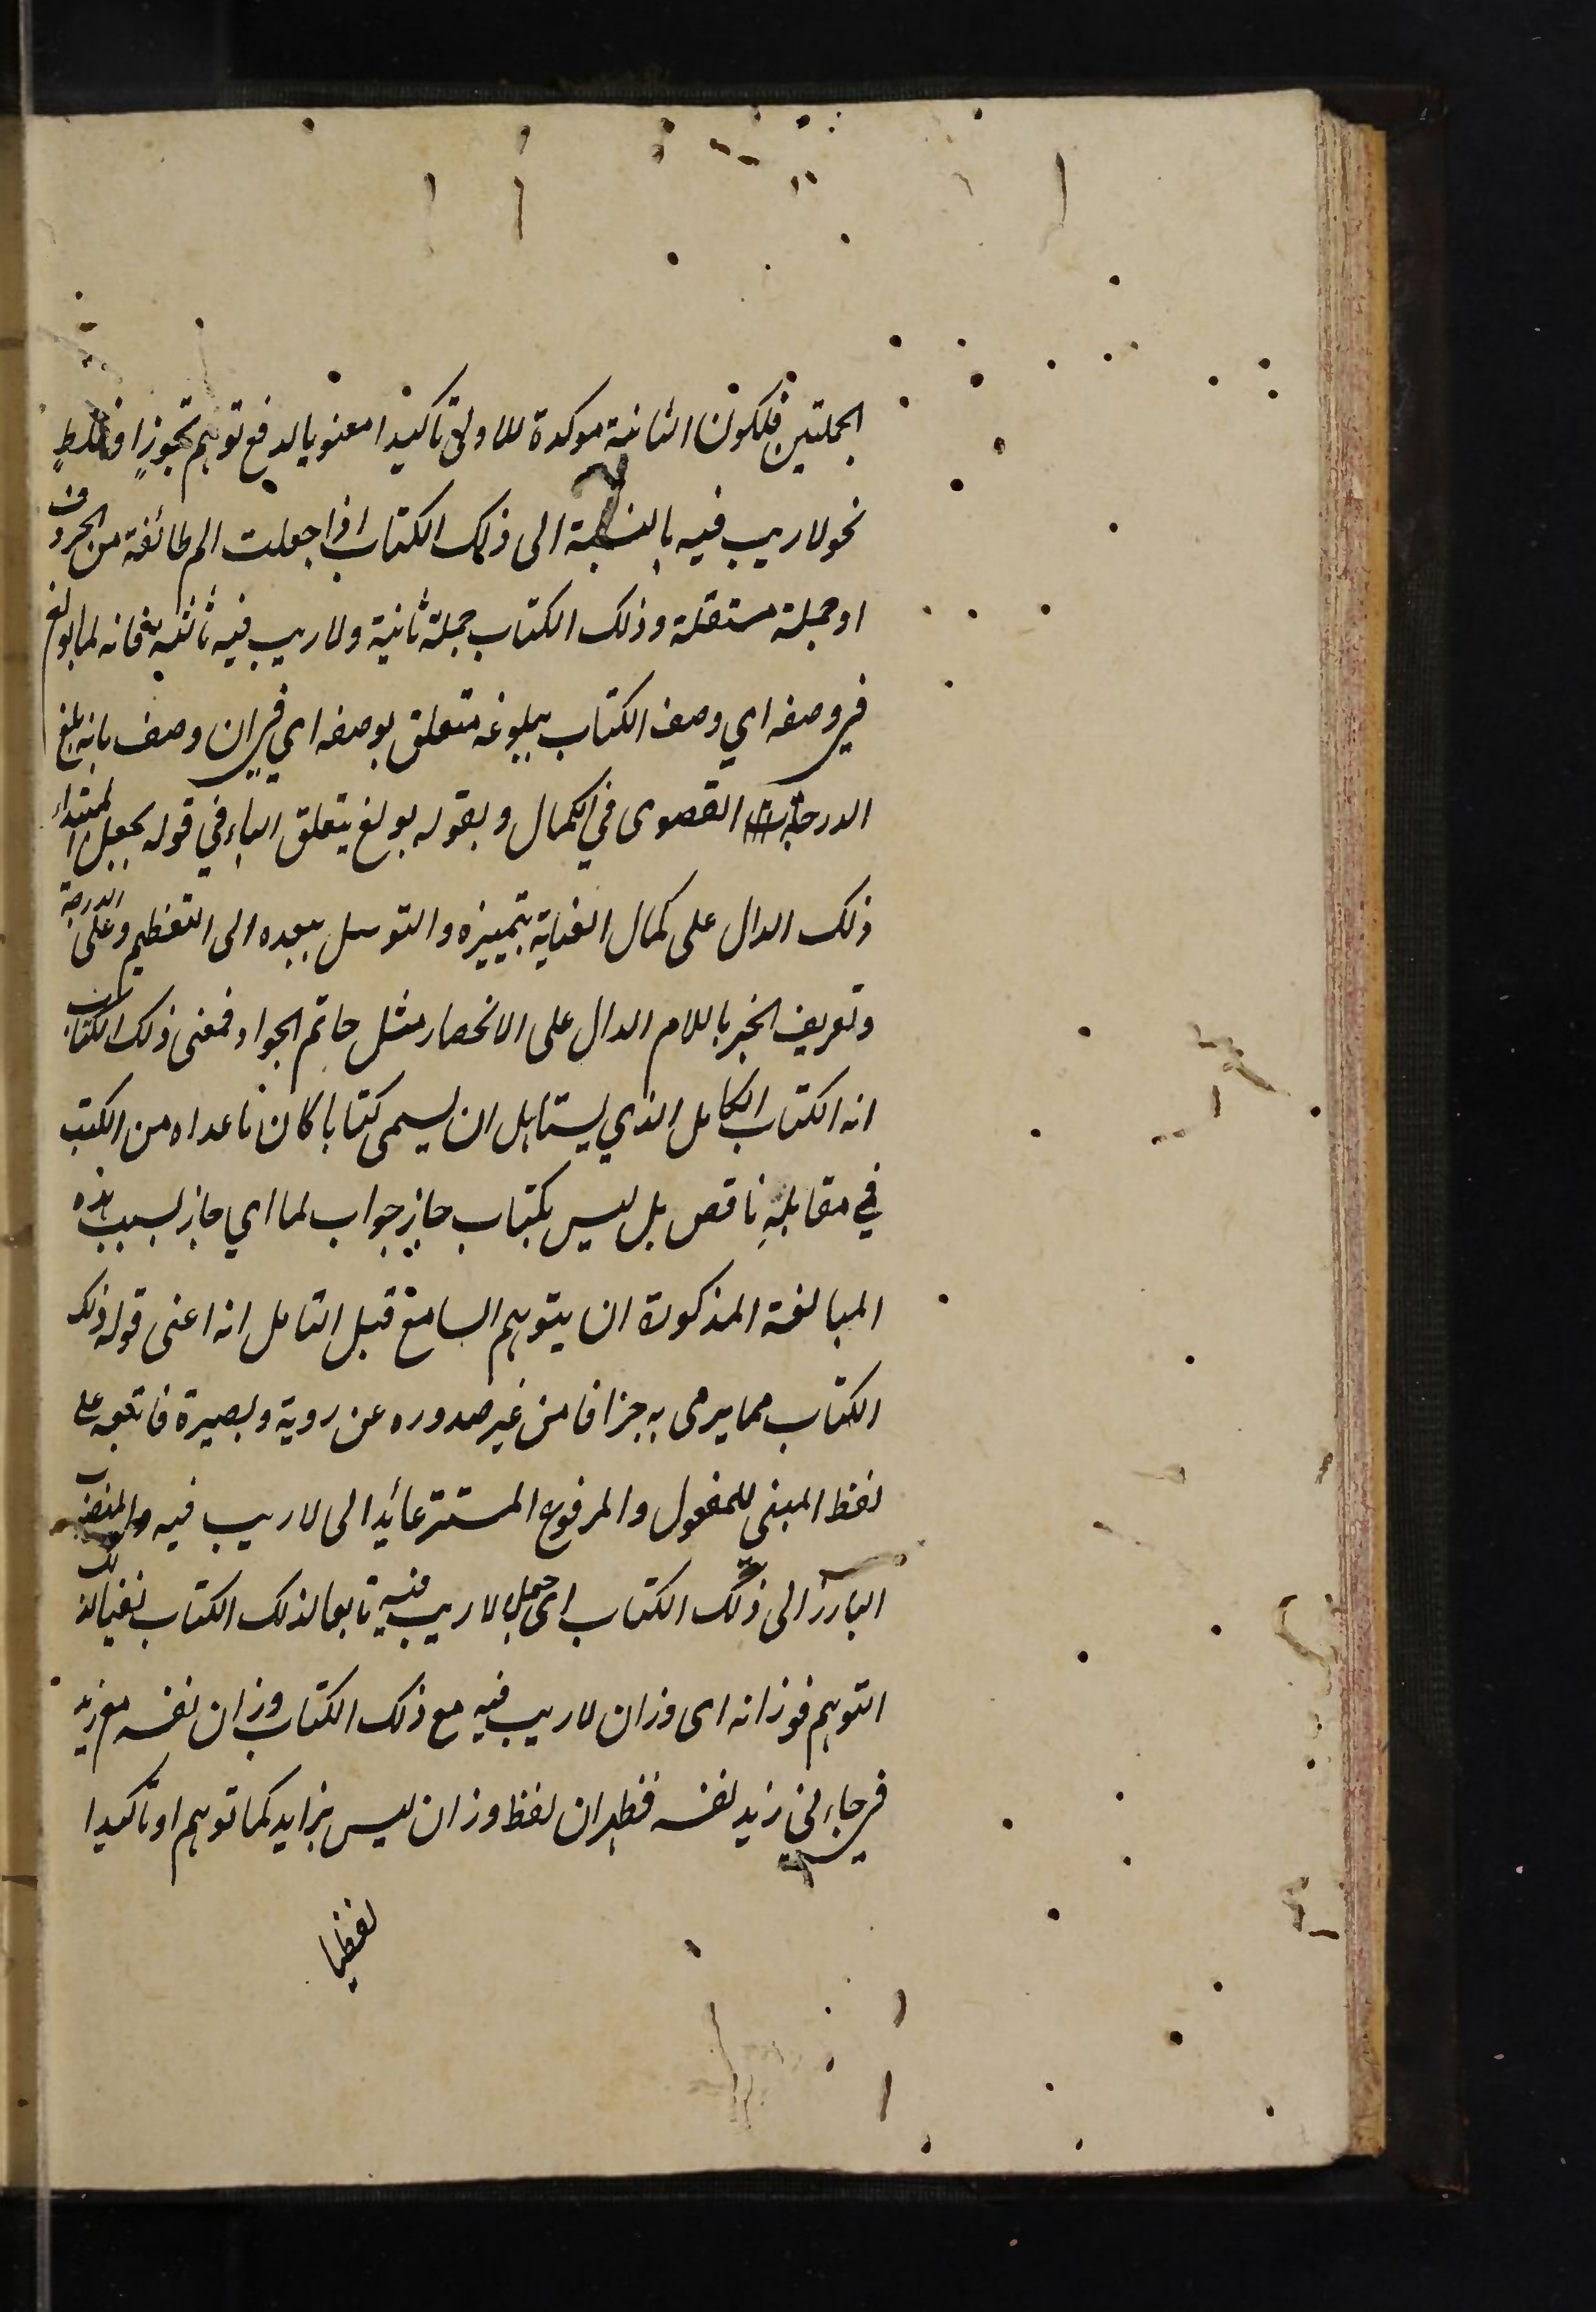 الجملتين فلكون الثانية موكدة للاولى تاكيدا معنويا لدفع توهم تجوز او غلط
نحو لا ريب فيه بالنسبة الى ذلك الكتاب اذا جعلت الم طائفة من الحروف
او جملة مستقلة وذلك الكتاب جملة ثانية ولا ريب فيه ثالثة فانه لما بولغ
في وصفه اي وصف الكتاب ببلوغه متعلق بوصفه اي في ان وصف بانه بلغ
الدرجة القصوى في الكمال وبقوله بولغ يتعلق الباء في قوله بجعل المبتداء
ذلك الدال على كمال العناية بتمييزه والتوسل ببعده الى التعظيم وعلى الدرجة
وتعريف الخبر باللام الدال على الانحصار مثل حاتم الجواد فمعنى ذلك الكتاب
انه الكتاب الكامل الذي يستاهل ان يسمى كتابا كان ما عداه من الكتب
في مقابلته ناقص بل ليس بكتاب جاز جواب لما اي جاز بسبب هذه
المبالغة المذكورة ان يتوهم السامع قبل التامل انه اعنى قوله ذلك
الكتاب مما يرمى به جزافا من غير صدوره عن روية وبصيرة فاتبعه على
لفظ المبنى للمفعول والمرفوع المستتر عائد الى لا ريب فيه والمنصوب
البارز الى ذلك الكتاب اى جعل لا ريب فيه تابعا لذلك الكتاب نفيا لذلك
التوهم فوزانه اى وزان لا ريب فيه مع ذلك الكتاب وزان نفسه مع زيد
في جاءني زيد نفسه فظهر ان لفظ وزان ليس بزايد كما توهم او تاكيدا
لفظيا